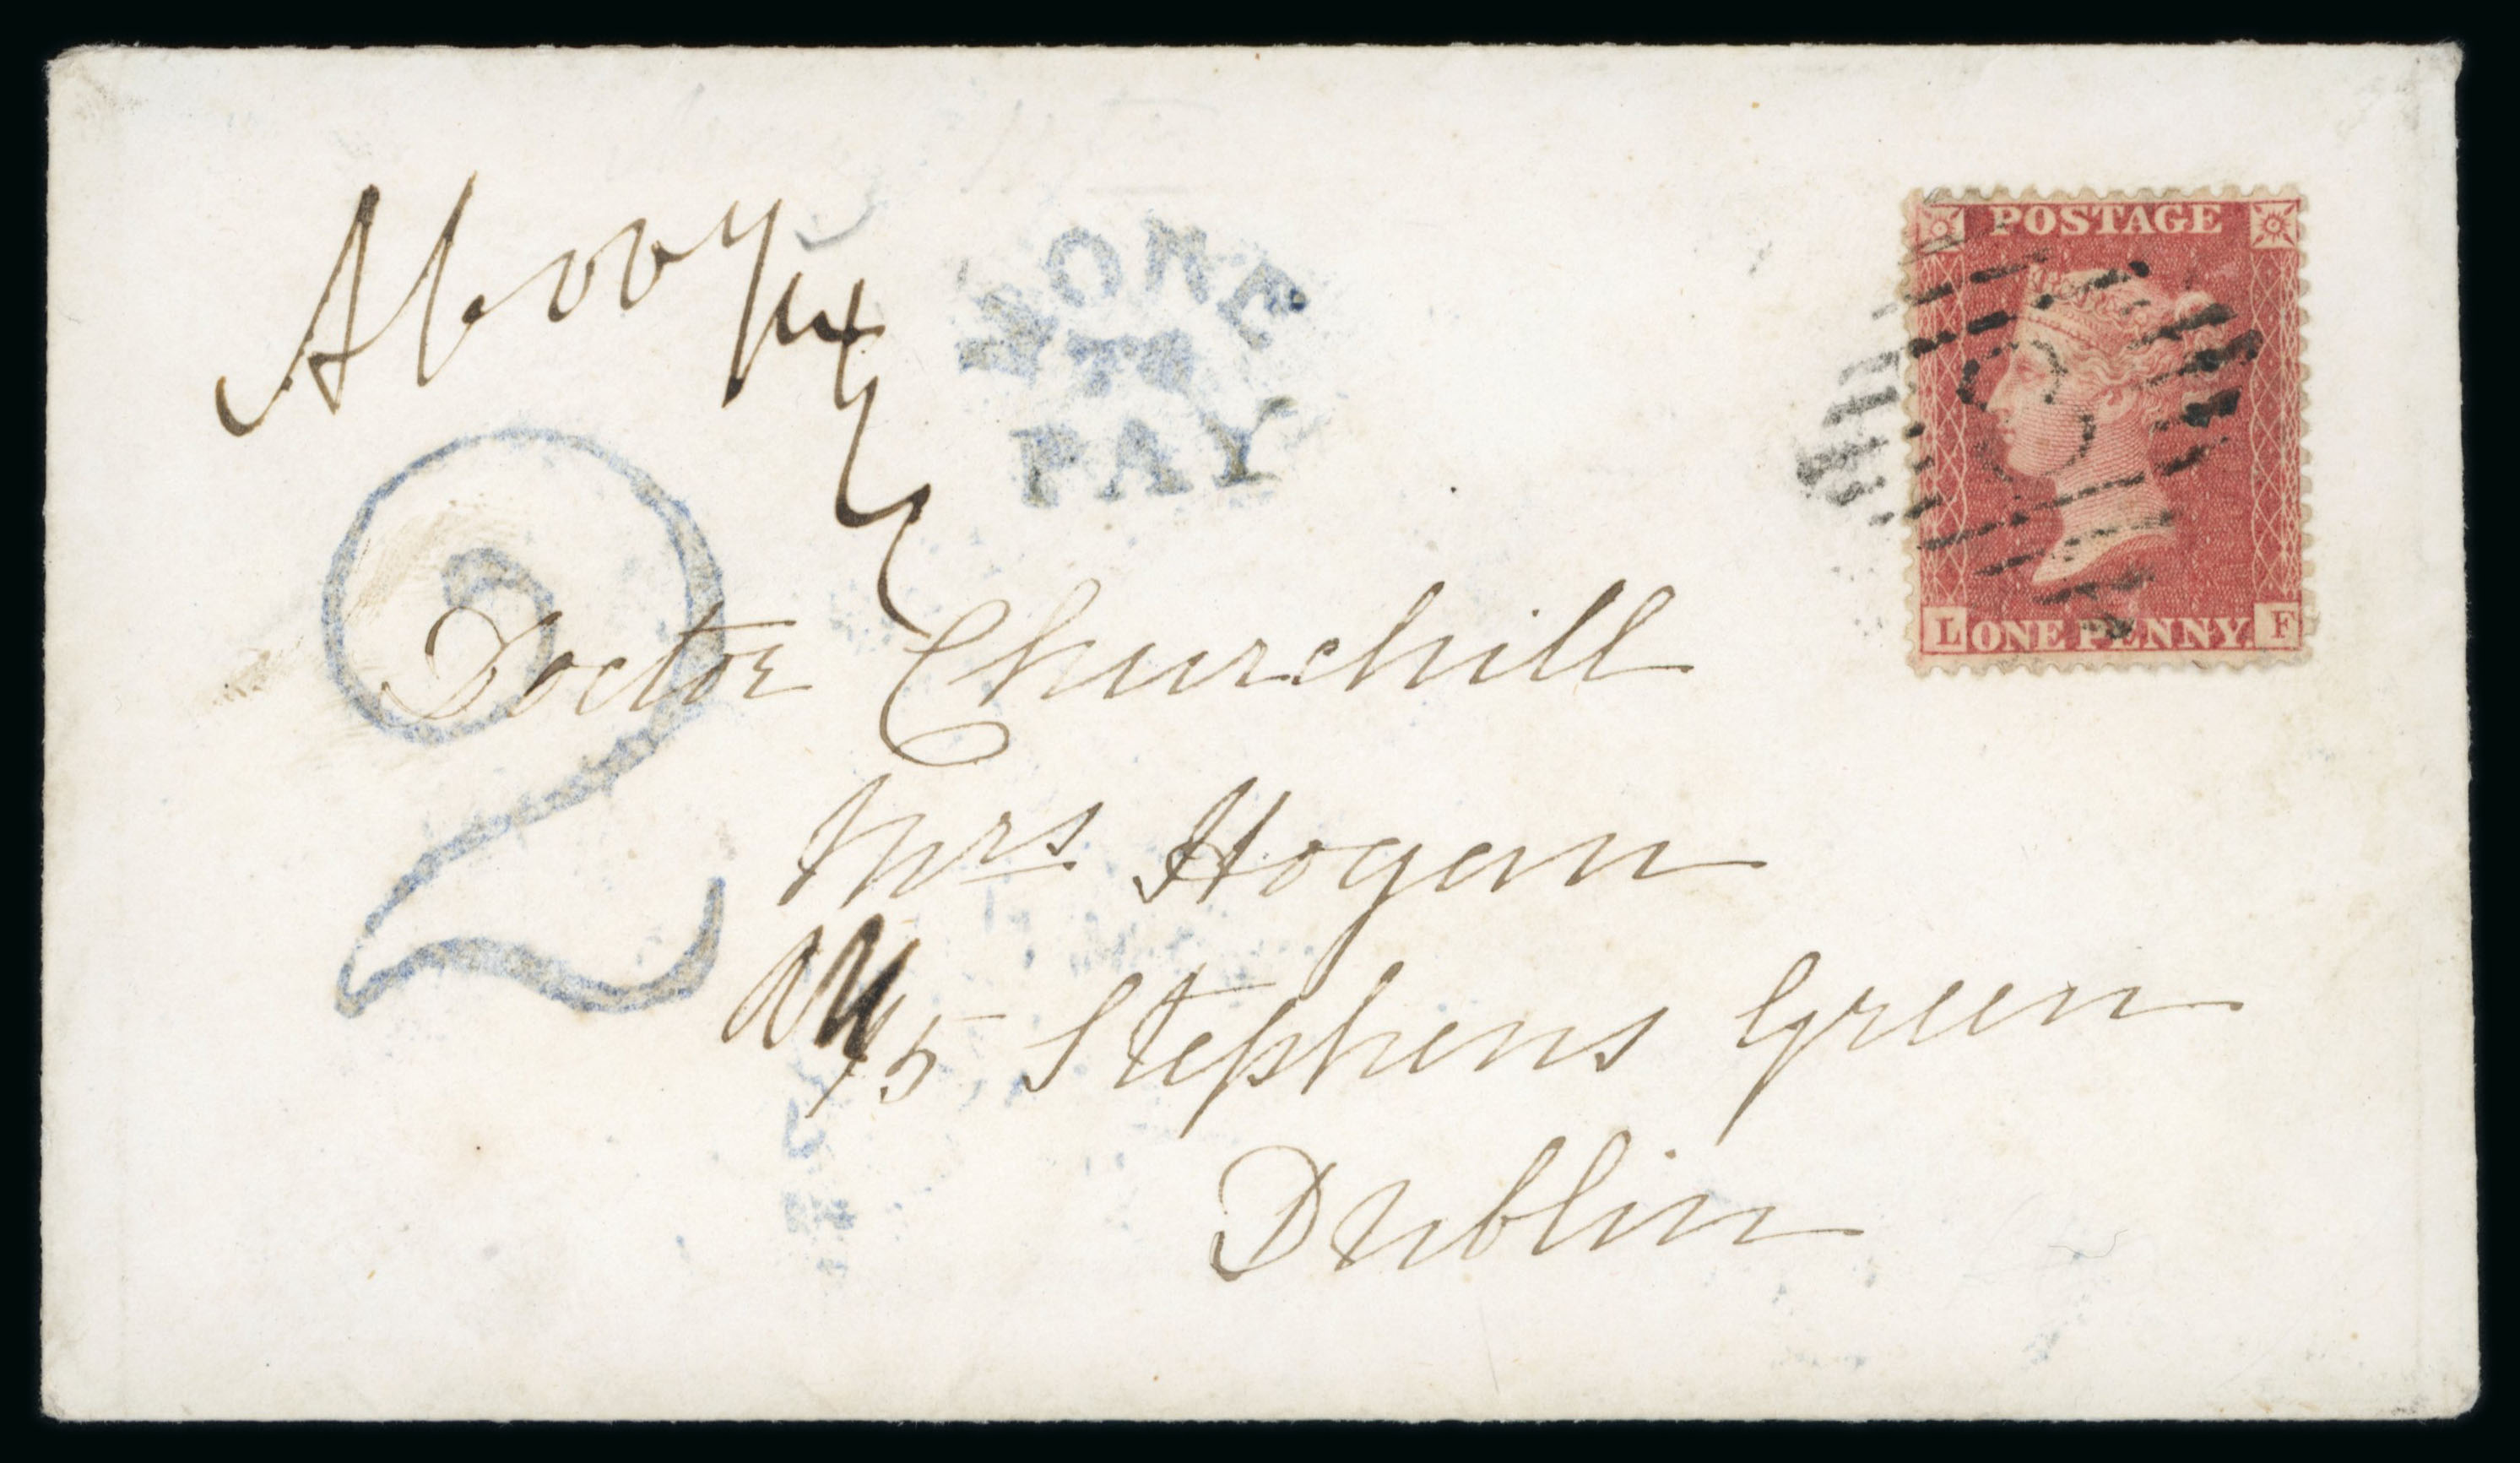 Above ½ oz
MORE
TO
PAY
2
POSTAGE
L ONE PENNY. F
Doctor Churchill
Mrs Hogan
15 Stephens Green
Dublin